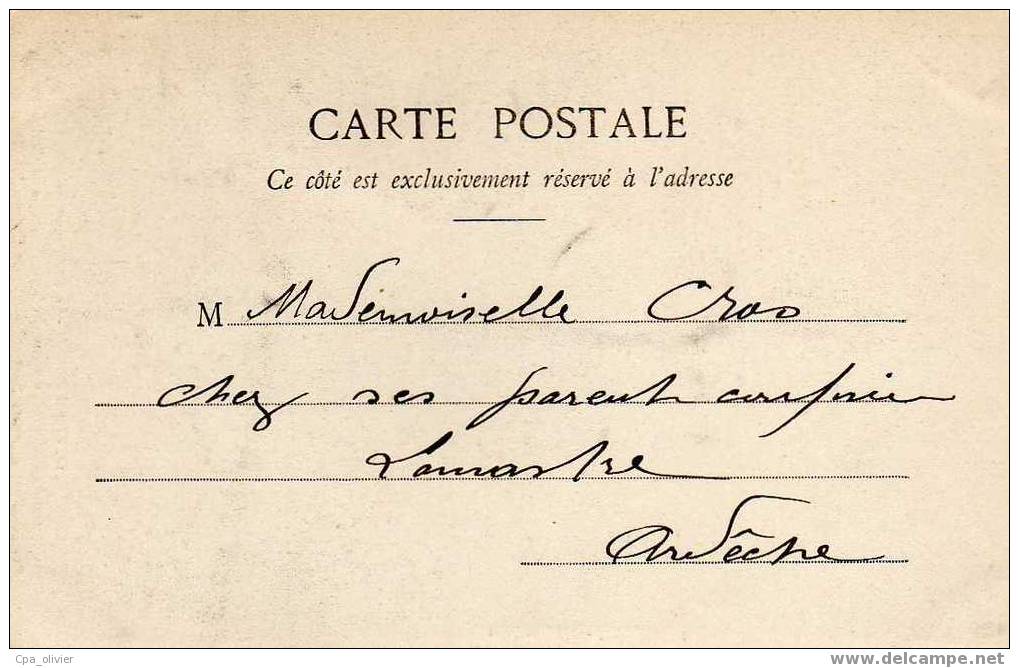 CARTE POSTALE
Ce côté est exclusivement réservé à l'adresse
M Mademoiselle Cros
chez ses parent
Lamastre
Ardèche
Cpa_olivier
www.delcampe.net